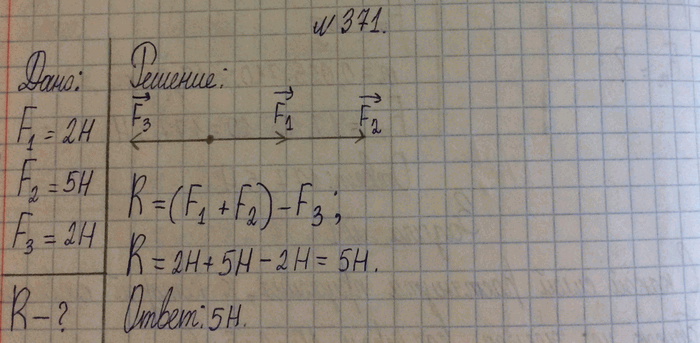 №371.
Дано:
F₁ = 2Н
F₂ = 5Н
F₃ = 2Н
R – ?
Решение:
F⃗₃ F⃗₁ F⃗₂
R = (F₁ + F₂) – F₃;
R = 2Н + 5Н – 2Н = 5Н.
Ответ: 5Н.